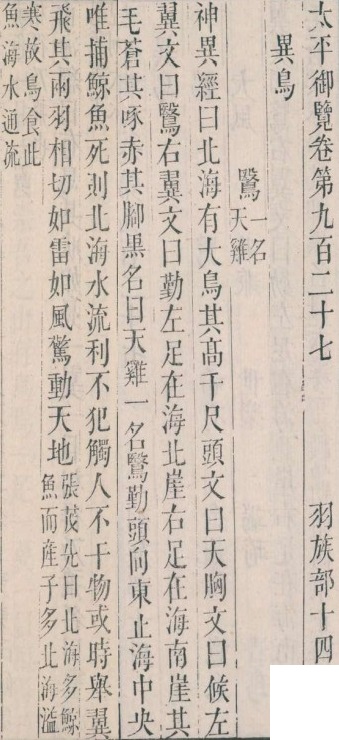 太平御覽卷第九百二十七 羽族部十四
異鳥
鷖一名天雞
神異經曰北海有大鳥其高千尺頭文曰天胸文曰候左
翼文曰鷖右翼文曰勤左足在海北崖右足在海南崖其
毛蒼其喙赤其脚黑名曰天雞一名鷖勤頭向東止海中央
唯捕鯨魚死則北海水流利不犯觸人不干物或時舉翼
飛其兩羽相切如雷如風驚動天地張茂先曰北海多鯨魚而産子多北海溢
寒故鳥食此魚海水通流